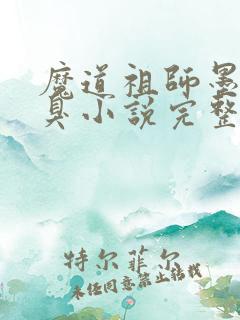 魔道祖师墨
臭小説完整
特尔菲尔
未任同意禁止转载